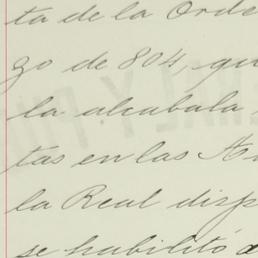 ta de la Orde
zo de 804, qu
la alcabala
tas en las A
la Real disp
se habilitó